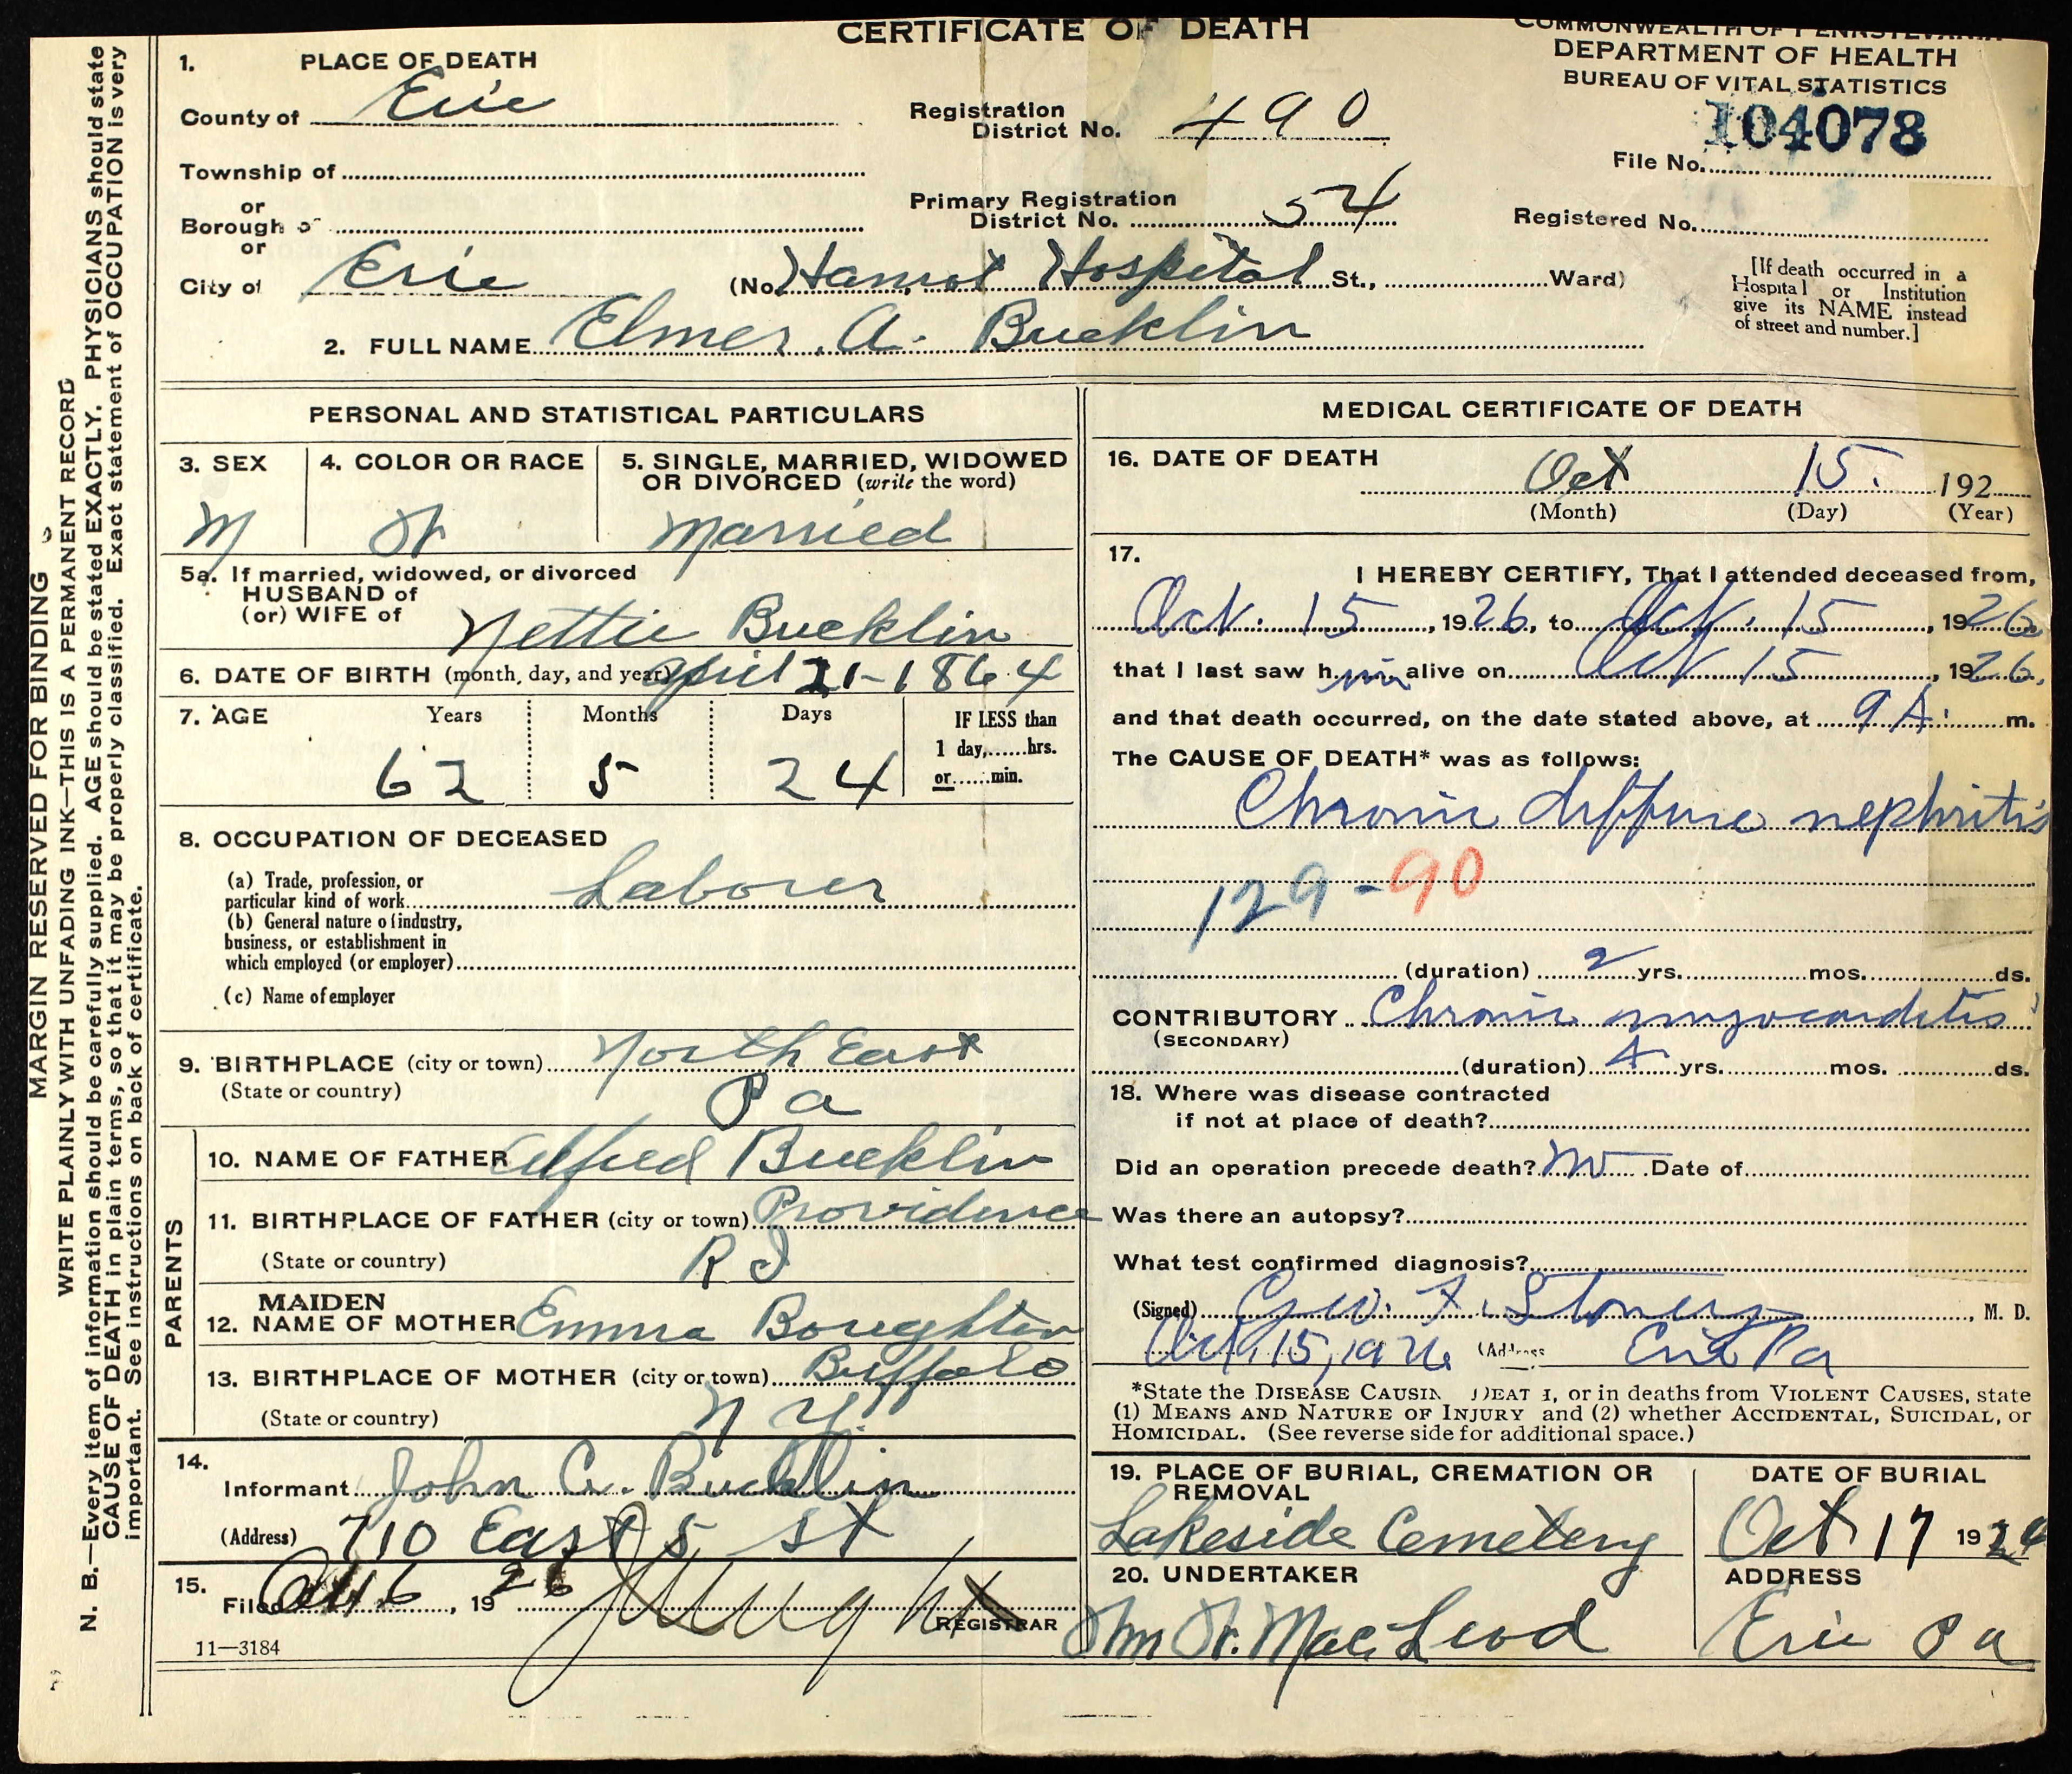 CERTIFICATE OF DEATH
COMMONWEALTH OF PENNSYLVANIA
DEPARTMENT OF HEALTH
BUREAU OF VITAL STATISTICS
104078
File No.
Registered No.
[If death occurred in a
Hospital or Institution
give its NAME instead
of street and number.]
1. PLACE OF DEATH
County of Erie
Registration
District No. 490
Township of
or
Borough of
or
Primary Registration
District No. 54
City of Erie (No. Hamot Hospital St., Ward)
2. FULL NAME Elmer A. Bucklin
MARGIN RESERVED FOR BINDING
WRITE PLAINLY WITH UNFADING INK—THIS IS A PERMANENT RECORD
N. B.—Every item of information should be carefully supplied. AGE should be stated EXACTLY. PHYSICIANS should state
CAUSE OF DEATH in plain terms, so that it may be properly classified. Exact statement of OCCUPATION is very
important. See instructions on back of certificate.
PERSONAL AND STATISTICAL PARTICULARS
3. SEX
M
4. COLOR OR RACE
W
5. SINGLE, MARRIED, WIDOWED
OR DIVORCED (write the word)
Married
5a. If married, widowed, or divorced
HUSBAND of
(or) WIFE of Nettie Bucklin
6. DATE OF BIRTH (month, day, and year) April 21-1864
7. AGE Years Months Days
62 5 24
IF LESS than
1 day,......hrs.
or......min.
8. OCCUPATION OF DECEASED
(a) Trade, profession, or
particular kind of work Laborer
(b) General nature of industry,
business, or establishment in
which employed (or employer)
(c) Name of employer
9. BIRTHPLACE (city or town) North East
(State or country) Pa
PARENTS
10. NAME OF FATHER Alfred Bucklin
11. BIRTHPLACE OF FATHER (city or town) Providence
(State or country) R I
12. MAIDEN
NAME OF MOTHER Emma Boughton
13. BIRTHPLACE OF MOTHER (city or town) Buffalo
(State or country) N Y
14.
Informant John A. Bucklin
(Address) 710 East 5 St
15.
Filed Oct 16, 1926
REGISTRAR
11—3184
MEDICAL CERTIFICATE OF DEATH
16. DATE OF DEATH
Oct 15. 192
(Month) (Day) (Year)
17.
I HEREBY CERTIFY, That I attended deceased from,
Oct. 15, 1926, to Oct. 15, 1926,
that I last saw him alive on Oct 15, 1926,
and that death occurred, on the date stated above, at 9 A. m.
The CAUSE OF DEATH* was as follows:
Chronic diffuse nephritis
129-90
(duration) 2 yrs. mos. ds.
CONTRIBUTORY Chronic myocarditis
(SECONDARY)
(duration) 4 yrs. mos. ds.
18. Where was disease contracted
if not at place of death?
Did an operation precede death? no Date of
Was there an autopsy?
What test confirmed diagnosis?
(Signed) , M. D.
Oct. 15, 1926 (Address Erie Pa
*State the DISEASE CAUSING DEATH, or in deaths from VIOLENT CAUSES, state
(1) MEANS AND NATURE OF INJURY and (2) whether ACCIDENTAL, SUICIDAL, or
HOMICIDAL. (See reverse side for additional space.)
19. PLACE OF BURIAL, CREMATION OR
REMOVAL
Lakeside Cemetery
DATE OF BURIAL
Oct 17 192
20. UNDERTAKER
Wm W. MacLeod
ADDRESS
Erie Pa